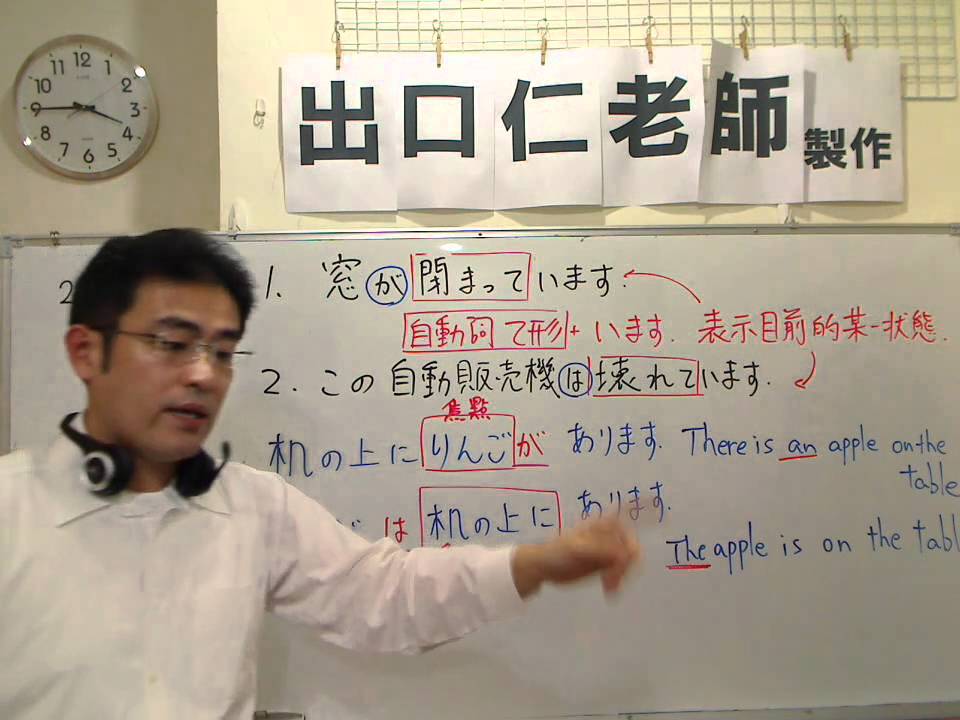 12 1 2 3 4 5 6 7 8 9 10 11
出口仁老師製作
2
1. 窓が閉まっています.
自動詞て形+います. 表示目前的某一狀態.
2. この自動販売機は壊れています.
焦點
机の上にりんごがあります. There is an apple on the table
は机の上にあります.
The apple is on the tabl